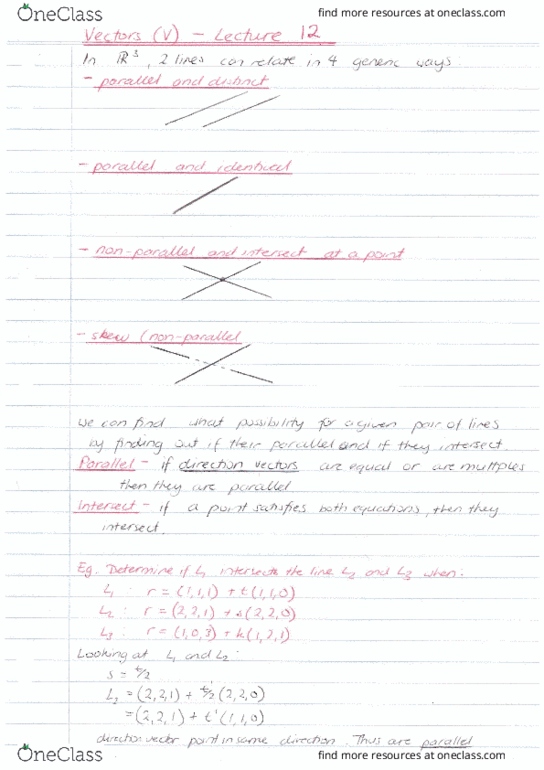 OneClass
find more resources at oneclass.com
Vectors (V) - Lecture 12
In ℝ³, 2 lines can relate in 4 generic ways
- parallel and distinct
- parallel and identical
- non-parallel and intersect at a point
- skew (non-parallel
we can find what possibility for a given pair of lines
by finding out if their parallel and if they intersect.
Parallel - if direction vectors are equal or are multiples
then they are parallel
Intersect - if a point satisfies both equations, then they
intersect.
Eg. Determine if L₁ intersects the line L₂ and L₃ when:
L₁ : r = (1,1,1) + t(1,1,0)
L₂ : r = (2,2,1) + s(2,2,0)
L₃ : r = (1,0,3) + k(1,2,1)
Looking at L₁ and L₂:
s = t/2
L₂ = (2,2,1) + t/2 (2,2,0)
= (2,2,1) + t'(1,1,0)
direction vector point in same direction. Thus are parallel
OneClass
find more resources at oneclass.com